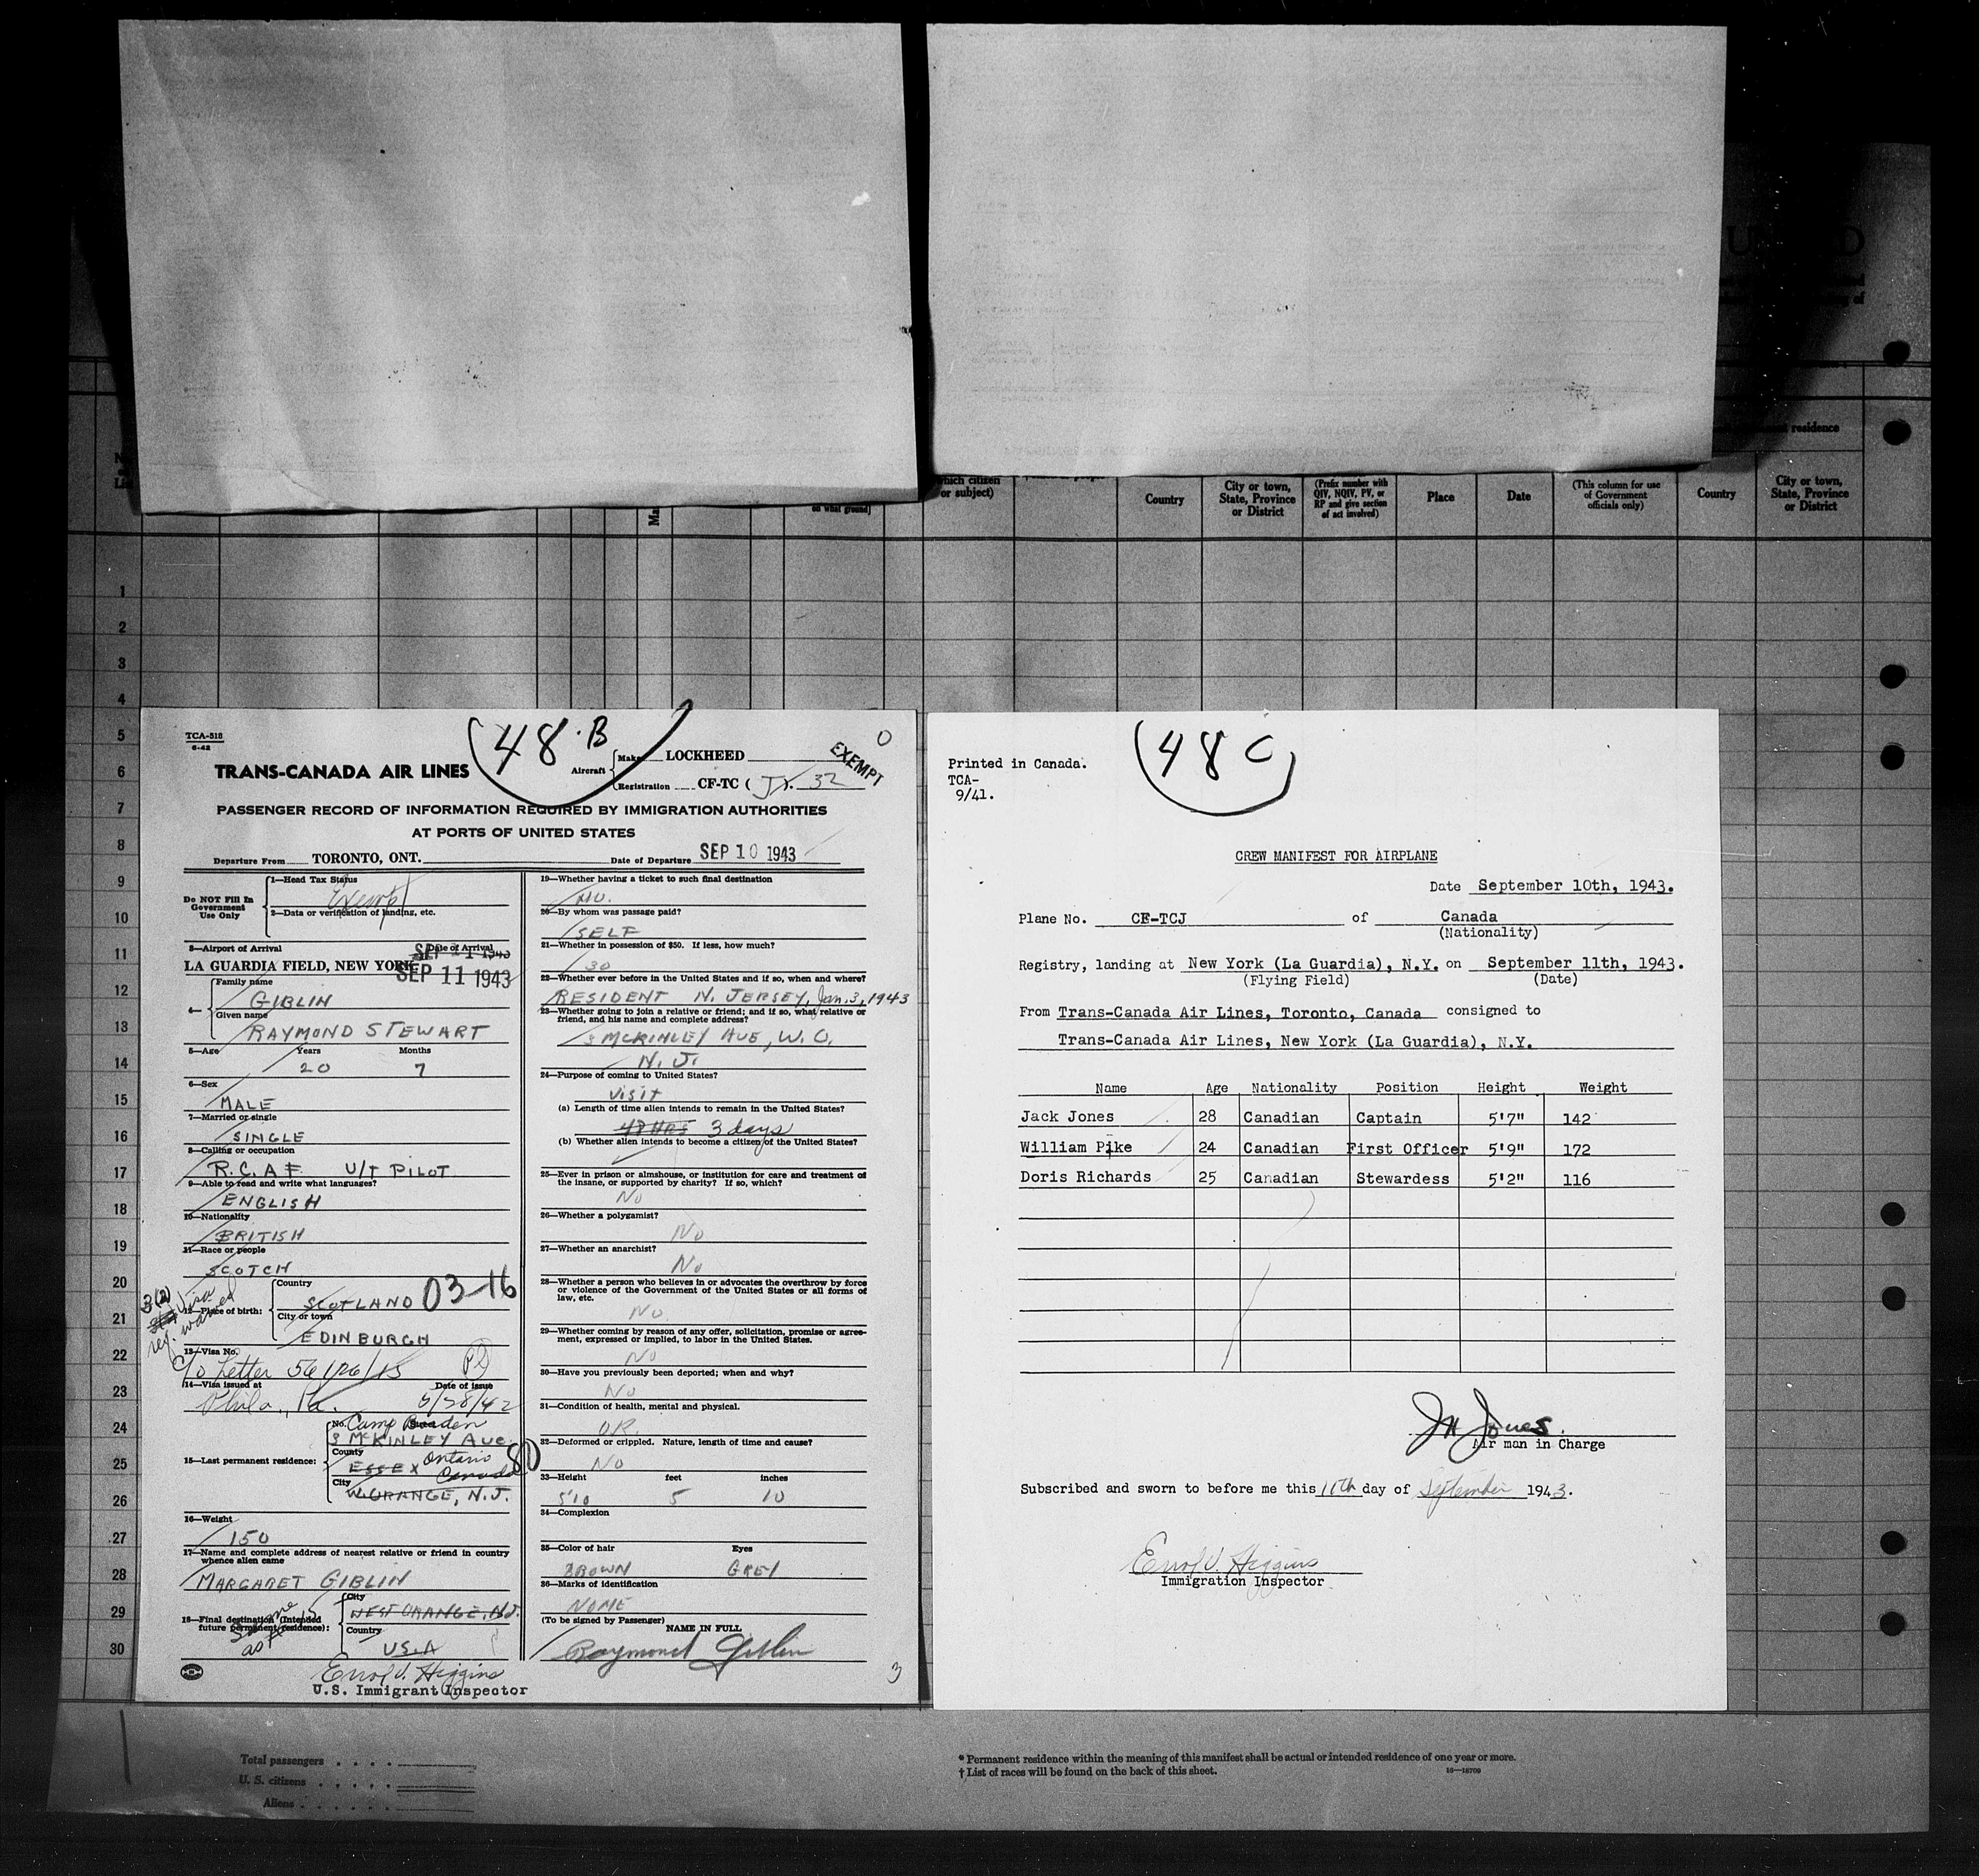 UNITED
residence
which citizen
or subject)
on what ground)
Country
City or town,
State, Province
or District
(Prefix number with
QIV, NQIV, PV, or
RP and give section
of act involved)
Place
Date
(This column for use
of Government
officials only)
Country
City or town,
State, Province
or District
1
2
3
4
5
6
7
8
9
10
11
12
13
14
15
16
17
18
19
20
21
22
23
24
25
26
27
28
29
30
TCA-518
6-42
48·B
O
EXEMPT
TRANS-CANADA AIR LINES
Aircraft
Make LOCKHEED
Registration CF-TC (J). 32
PASSENGER RECORD OF INFORMATION REQUIRED BY IMMIGRATION AUTHORITIES
AT PORTS OF UNITED STATES
Departure From TORONTO, ONT. Date of Departure SEP 10 1943
Do NOT Fill In
Government
Use Only
1—Head Tax Status
Exempt
2—Data or verification of landing, etc.
3—Airport of Arrival Date of Arrival
SEP 11 1943
LA GUARDIA FIELD, NEW YORK SEP 11 1943
4—
Family name
GIBLIN
Given name
RAYMOND STEWART
5—Age Years Months
20 7
6—Sex
MALE
7—Married or single
SINGLE
8—Calling or occupation
R.C.A.F. U/T PILOT
9—Able to read and write what languages?
ENGLISH
10—Nationality
BRITISH
11—Race or people
SCOTCH
3(2) Visa
req. waived
12—Place of birth:
Country
SCOTLAND 03-16
City or town
EDINBURGH
13—Visa No.
c/o Letter 56/126/15
14—Visa issued at Date of issue
Phila., Pa. 5/28/42
15—Last permanent residence:
No. Camp Borden Street
3 McKINLEY AVE.
County Ontario
ESSEX Canada 80
City
W. ORANGE, N.J.
16—Weight
150
17—Name and complete address of nearest relative or friend in country
whence alien came
MARGARET GIBLIN
18—Final destination (Intended
future permanent residence):
Same
as 15
City
WEST ORANGE, N.J.
Country
U.S.A
Errol J. Higgins
U.S. Immigrant Inspector
19—Whether having a ticket to such final destination
NO.
20—By whom was passage paid?
SELF
21—Whether in possession of $50. If less, how much?
30
22—Whether ever before in the United States and if so, when and where?
RESIDENT N. JERSEY, Jan. 3, 1943
23—Whether going to join a relative or friend; and if so, what relative or
friend, and his name and complete address?
3 McKINLEY AVE, W. O.
N. J.
24—Purpose of coming to United States?
Visit
(a) Length of time alien intends to remain in the United States?
48 HRS 3 days
(b) Whether alien intends to become a citizen of the United States?
25—Ever in prison or almshouse, or institution for care and treatment of
the insane, or supported by charity? If so, which?
No
26—Whether a polygamist?
No
27—Whether an anarchist?
No
28—Whether a person who believes in or advocates the overthrow by force
or violence of the Government of the United States or all forms of
law, etc.
No.
29—Whether coming by reason of any offer, solicitation, promise or agree-
ment, expressed or implied, to labor in the United States.
No
30—Have you previously been deported; when and why?
No
31—Condition of health, mental and physical.
OK.
32—Deformed or crippled. Nature, length of time and cause?
No
33—Height feet inches
5'10 5 10
34—Complexion
35—Color of hair Eyes
BROWN GREY
36—Marks of identification
NONE
(To be signed by Passenger)
NAME IN FULL
Raymond Giblin
3
Printed in Canada.
TCA-
9/41.
48 C
CREW MANIFEST FOR AIRPLANE
Date September 10th, 1943.
Plane No. CF-TCJ of Canada
(Nationality)
Registry, landing at New York (La Guardia), N.Y. on September 11th, 1943.
(Flying Field) (Date)
From Trans-Canada Air Lines, Toronto, Canada consigned to
Trans-Canada Air Lines, New York (La Guardia), N.Y.
Name Age Nationality Position Height Weight
Jack Jones 28 Canadian Captain 5'7" 142
William Pike 24 Canadian First Officer 5'9" 172
Doris Richards 25 Canadian Stewardess 5'2" 116
J H Jones.
Air man in Charge
Subscribed and sworn to before me this 11th day of September 1943.
Errol J. Higgins
Immigration Inspector
Total passengers
U. S. citizens
Aliens
* Permanent residence within the meaning of this manifest shall be actual or intended residence of one year or more.
† List of races will be found on the back of this sheet.
16—18709